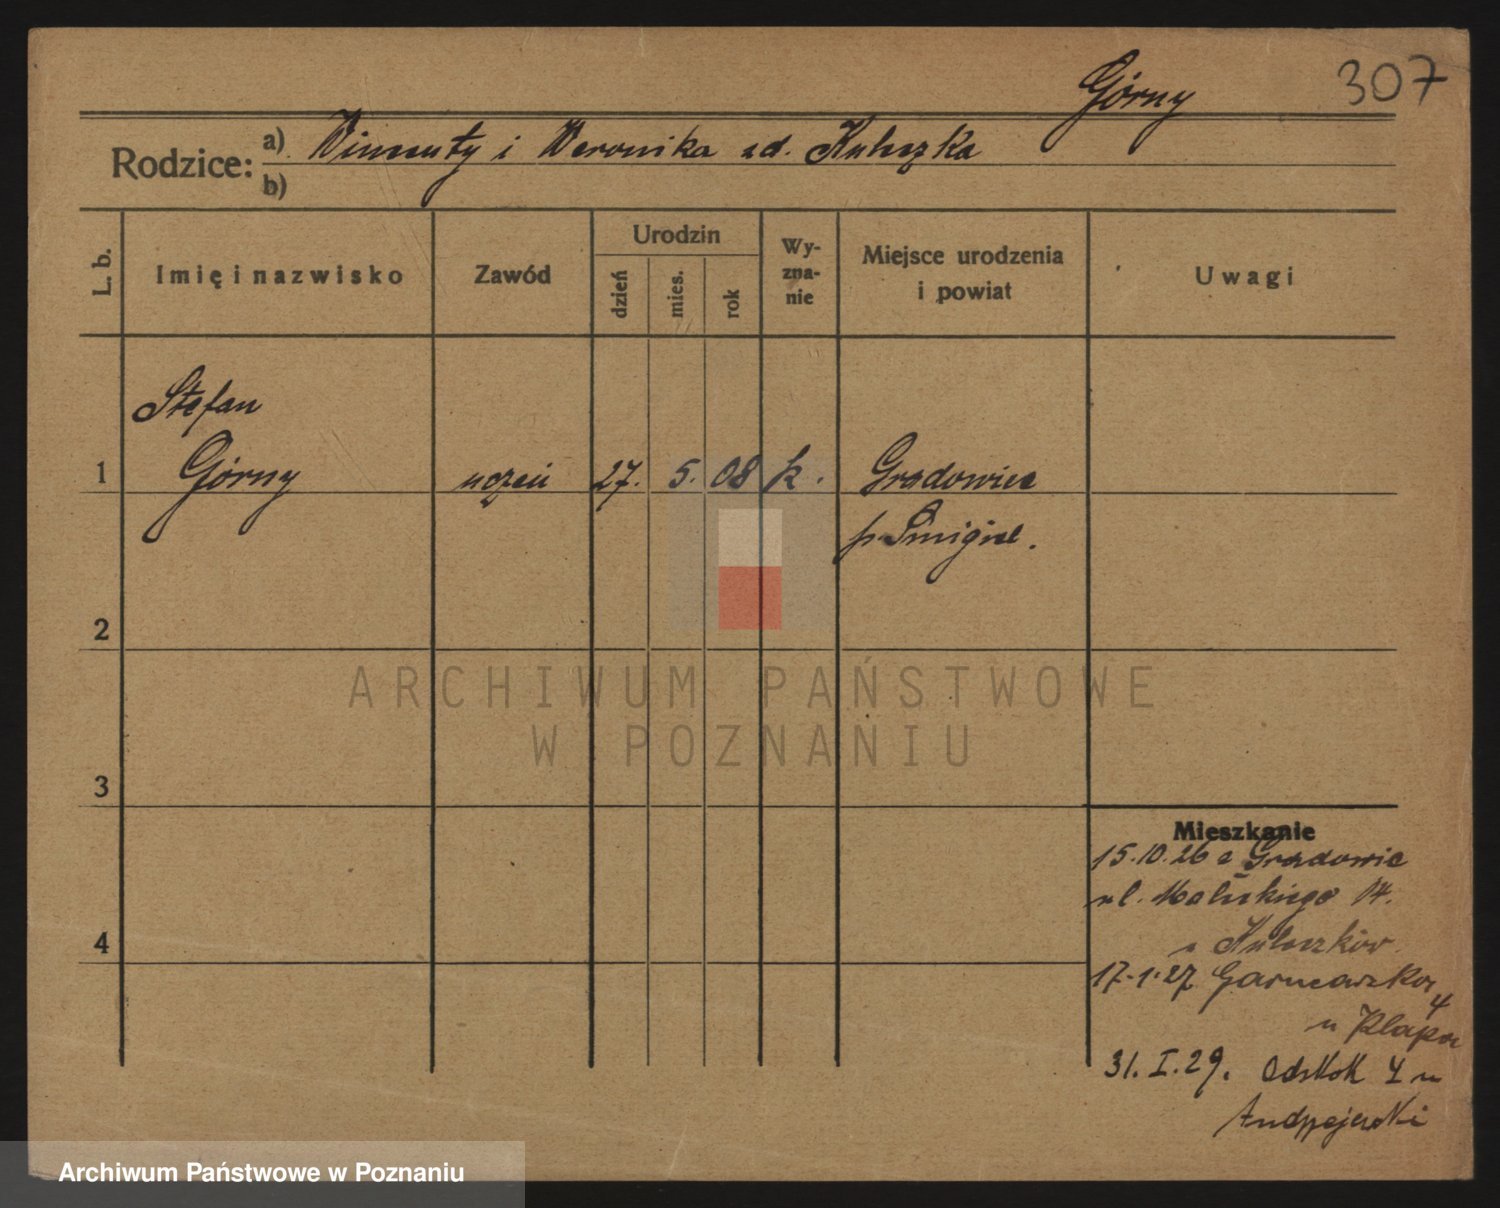 Górny
307
Rodzice: a) Wincenty i Weronika zd. Kuleszka
b)
L. b.
Imię i nazwisko
Zawód
Urodzin
dzień
mies.
rok
Wy-
zna-
nie
Miejsce urodzenia
i powiat
Uwagi
Stefan
1 Górny uczeń 27. 5. 08 k. Gradowice
p. Śmigiel.
2
3
4
Mieszkanie
15.10.26 z Gradowic
ul. 14.
u
17.1.27 Garncarska
4
u Klapa
31.I.29. 4 u
Andrzejewski
ARCHIWUM PAŃSTWOWE
W POZNANIU
Archiwum Państwowe w Poznaniu